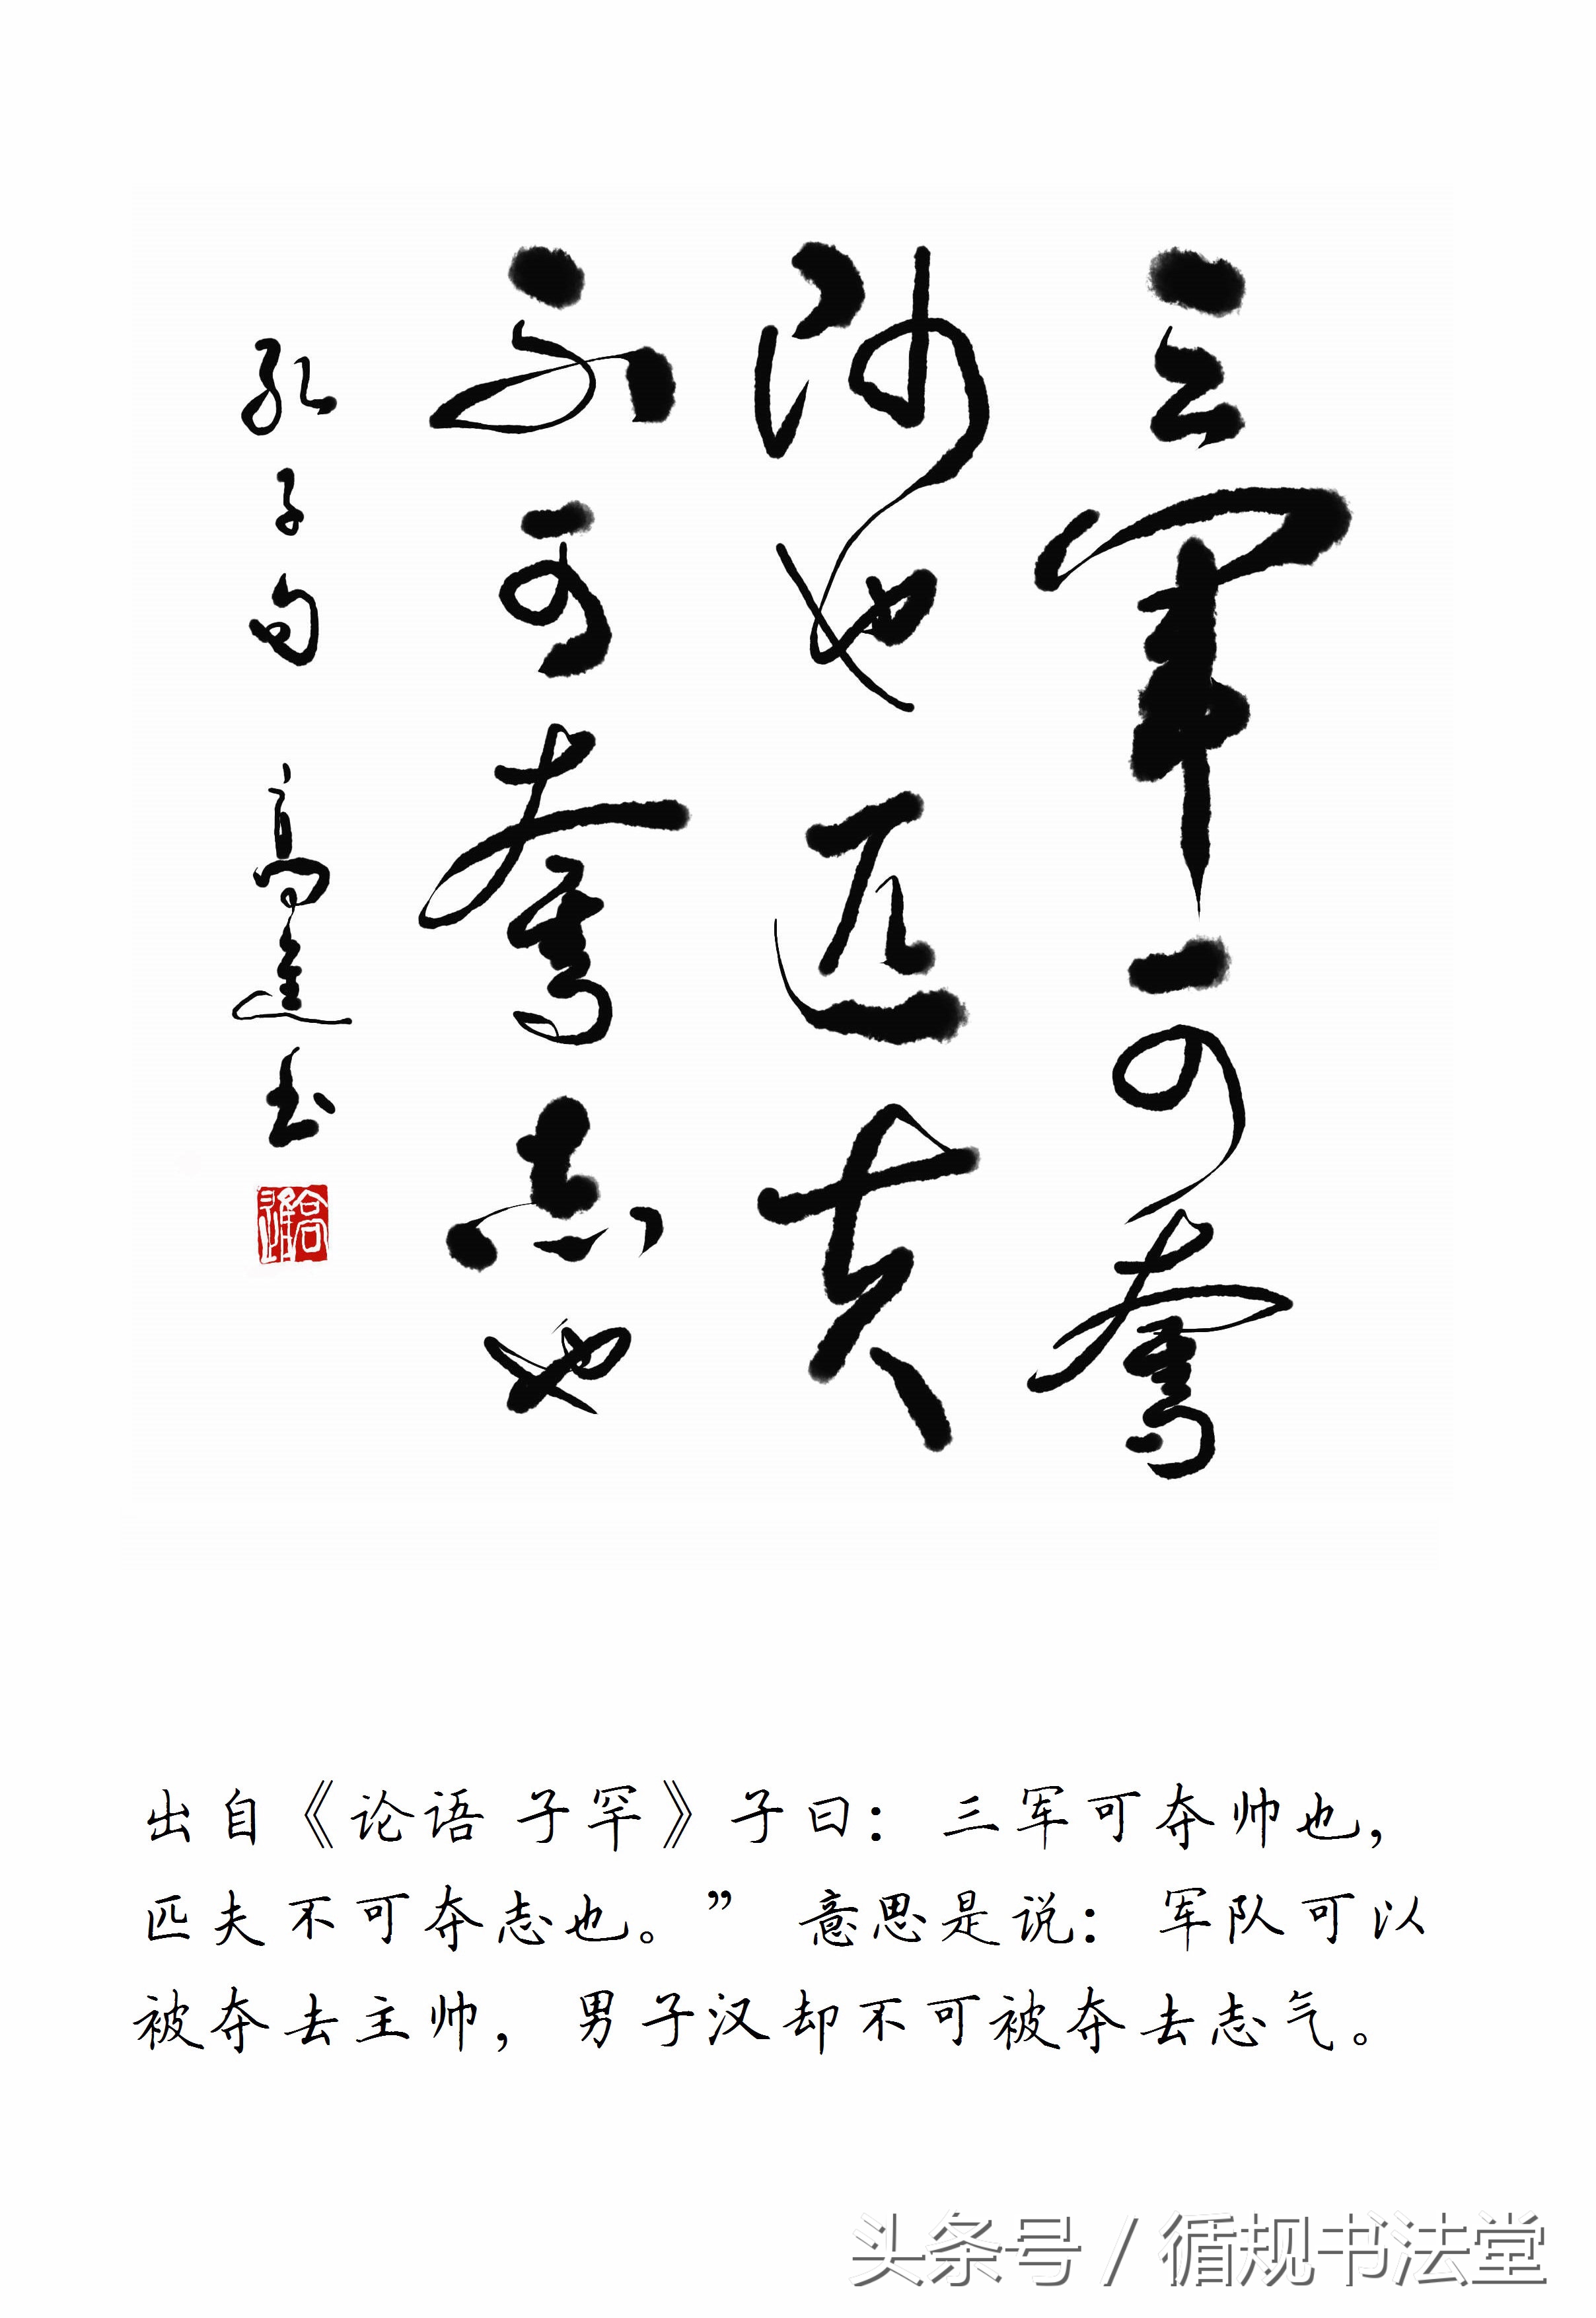 三军可奪
帅也匹夫
不可奪志也
孔子句 高進书
出自《论语 子罕》子曰：三军可夺帅也，
匹夫不可夺志也。” 意思是说：军队可以
被夺去主帅，男子汉却不可被夺去志气。
头条号 / 循规书法堂